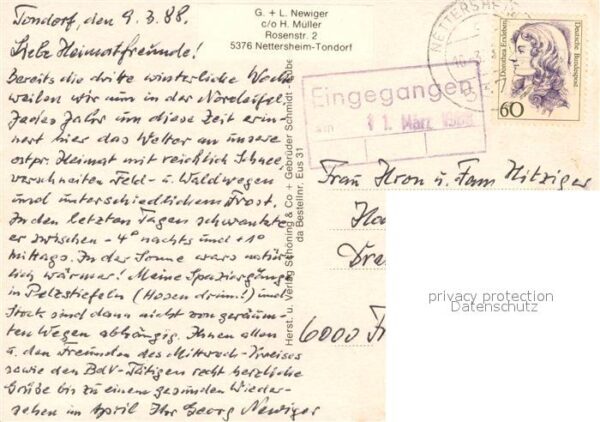 Tondorf, den 9.3.88.
Liebe Heimatfreunde!
Bereits die dritte winterliche Woche
weilen wir nun in der Nordeifel.
Jedes Jahr um diese Zeit erin-
nert hier das Wetter an unsere
ostpr. Heimat mit reichlich Schnee,
verschneiten Feld- u. Waldwegen
und unterschiedlichem Frost.
In den letzten Tagen schwankte
er zwischen -4° nachts und +1°
mittags. In der Sonne wars natür-
lich wärmer! Meine Spaziergänge
in Pelzstiefeln (Hosen drin!) und
Stock sind dann nicht von geräum-
ten Wegen abhängig. Ihnen allen
u. den Freunden des Mittwoch-Kreises
sowie den BdV-Tätigen recht herzliche
Grüße bis zu einem gesunden Wieder-
sehen im April Ihr Georg Newiger
G. + L. Newiger
c/o H. Müller
Rosenstr. 2
5376 Nettersheim-Tondorf
Herst. u. Verlag Schöning & Co + Gebrüder Schmidt
Bestellnr. Eus 31
NETTERSHEIM
Dorothea Erxleben
Deutsche Bundespost
60
Eingegangen
am 11. März 1988
Frau Hron u. Fam Hitziger
6000 F
privacy protection
Datenschutz